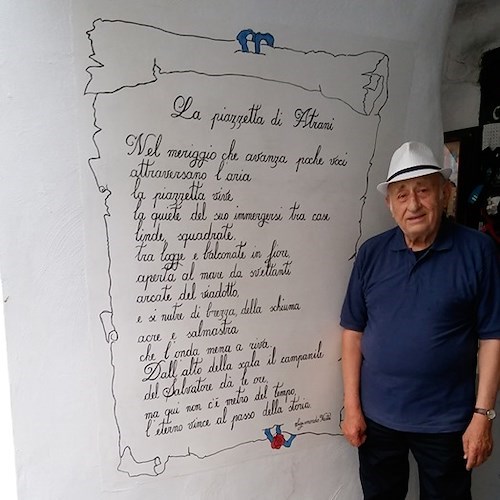 La piazzetta di Atrani
Nel meriggio che avanza poche voci
attraversano l'aria
la piazzetta vive
la quiete del suo immergersi tra case
linde, squadrate,
tra logge e balconate in fiore,
aperta al mare da sveltanti
arcate del viadotto,
e si nutre di brezza, della schiuma
acre e salmastra
che l'onda mena a riva.
Dall'alto della scala il campanile
del Salvatore dà le ore,
ma qui non c'è metro del tempo,
l'eterno vince al passo della storia.